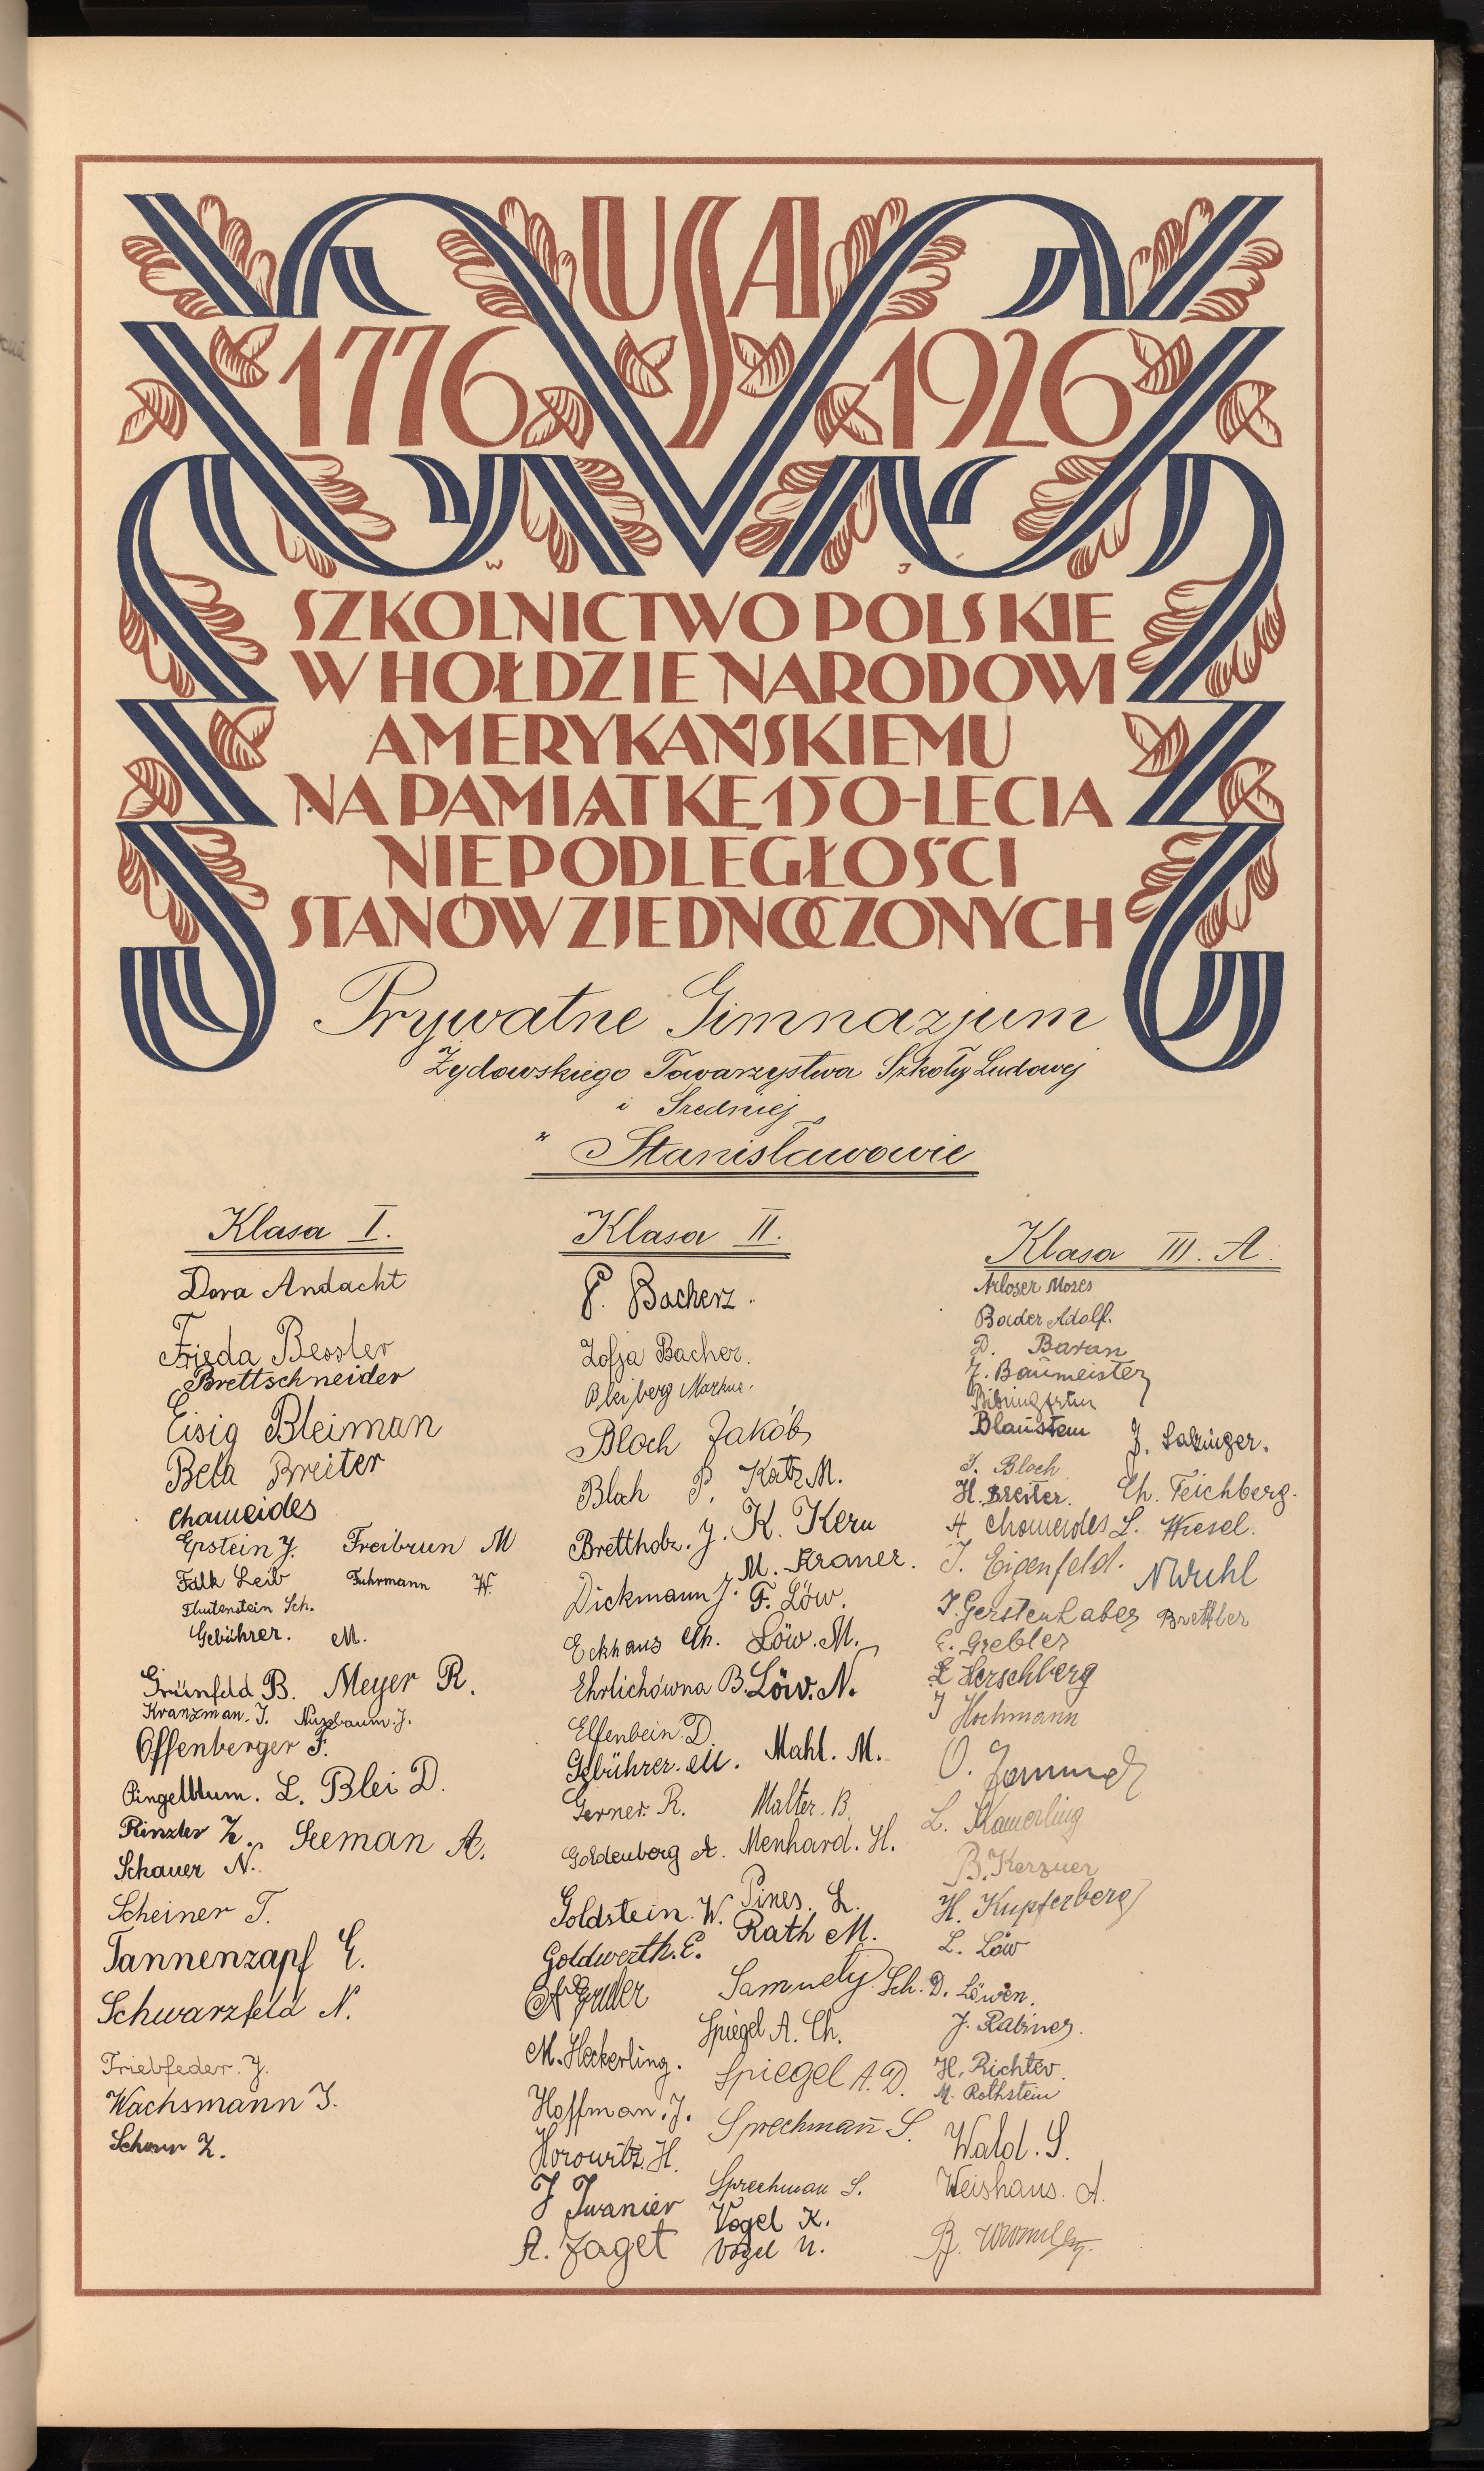 USA
1776 1926
SZKOLNICTWO POLSKIE
W HOŁDZIE NARODOWI
AMERYKAŃSKIEMU
NA PAMIĄTKĘ 150-LECIA
NIEPODLEGŁOŚCI
STANÓW ZJEDNOCZONYCH
Prywatne Gimnazjum
Żydowskiego Towarzystwa Szkoły Ludowej
i Średniej
w Stanisławowie
Klasa I.
Dora Andacht
Frieda Bessler
Brettschneider
Eisig Bleiman
Bela Breiter
Chameides
Epstein J. Freibrun M
Falk Leib Fuhrmann W.
Sch.
Gebührer. M.
Grünfeld B. Meyer R.
Kranzman. J. Nussbaum. J.
Offenberger F.
L. Blei D.
Rinzler Z. Seeman A.
Schauer N.
Scheiner T.
Tannenzapf E.
Schwarzfeld N.
Friebfeder. J.
Wachsmann J.
Z.
Klasa II.
P. Bacherz.
Zofja Bacher.
Bleiberg Markus.
Bloch Jakób
Bloch P. Katz M.
Brettholz. J. K. Kern
Dickmann J. M. Kraner.
F. Löw.
Eckhaus Ch. Löw. M.
Ehrlichówna B. Löw. N.
Elfenbein. D.
Gebührer. M. Mahl. M.
Gerner. R. Malter. B.
Goldenberg A. Menhard. H.
Goldstein. W. Pines. L.
Goldwerth. E. Rath M.
Samuely Sch.
M. Heckerling. Spiegel A. Ch.
Hoffman. J. Spiegel A. D.
Horowitz. H. Sprechman S.
J Iwanier Sprechman S.
A. Jaget Vogel K.
Vogel N.
Klasa III. A.
Arloser Mozes
Bader Adolf.
D. Baran
J. Baumeister
Blaustein J. Salzinger.
J. Bloch
H. Breiter. Ch. Teichberg.
A Chameides L. Wiesel.
J. Eigenfeld. N Wuhl
J. Gerstenhaber Brettler
E. Grebler
L Herschberg
J Hochmann
O.
L. Kamerling
B. Kerzner
H. Kupferberg
L. Löw
D. Löwen.
J. Rabiner.
H. Richter
M. Rothstein
Wald. S.
Weishaus. A.